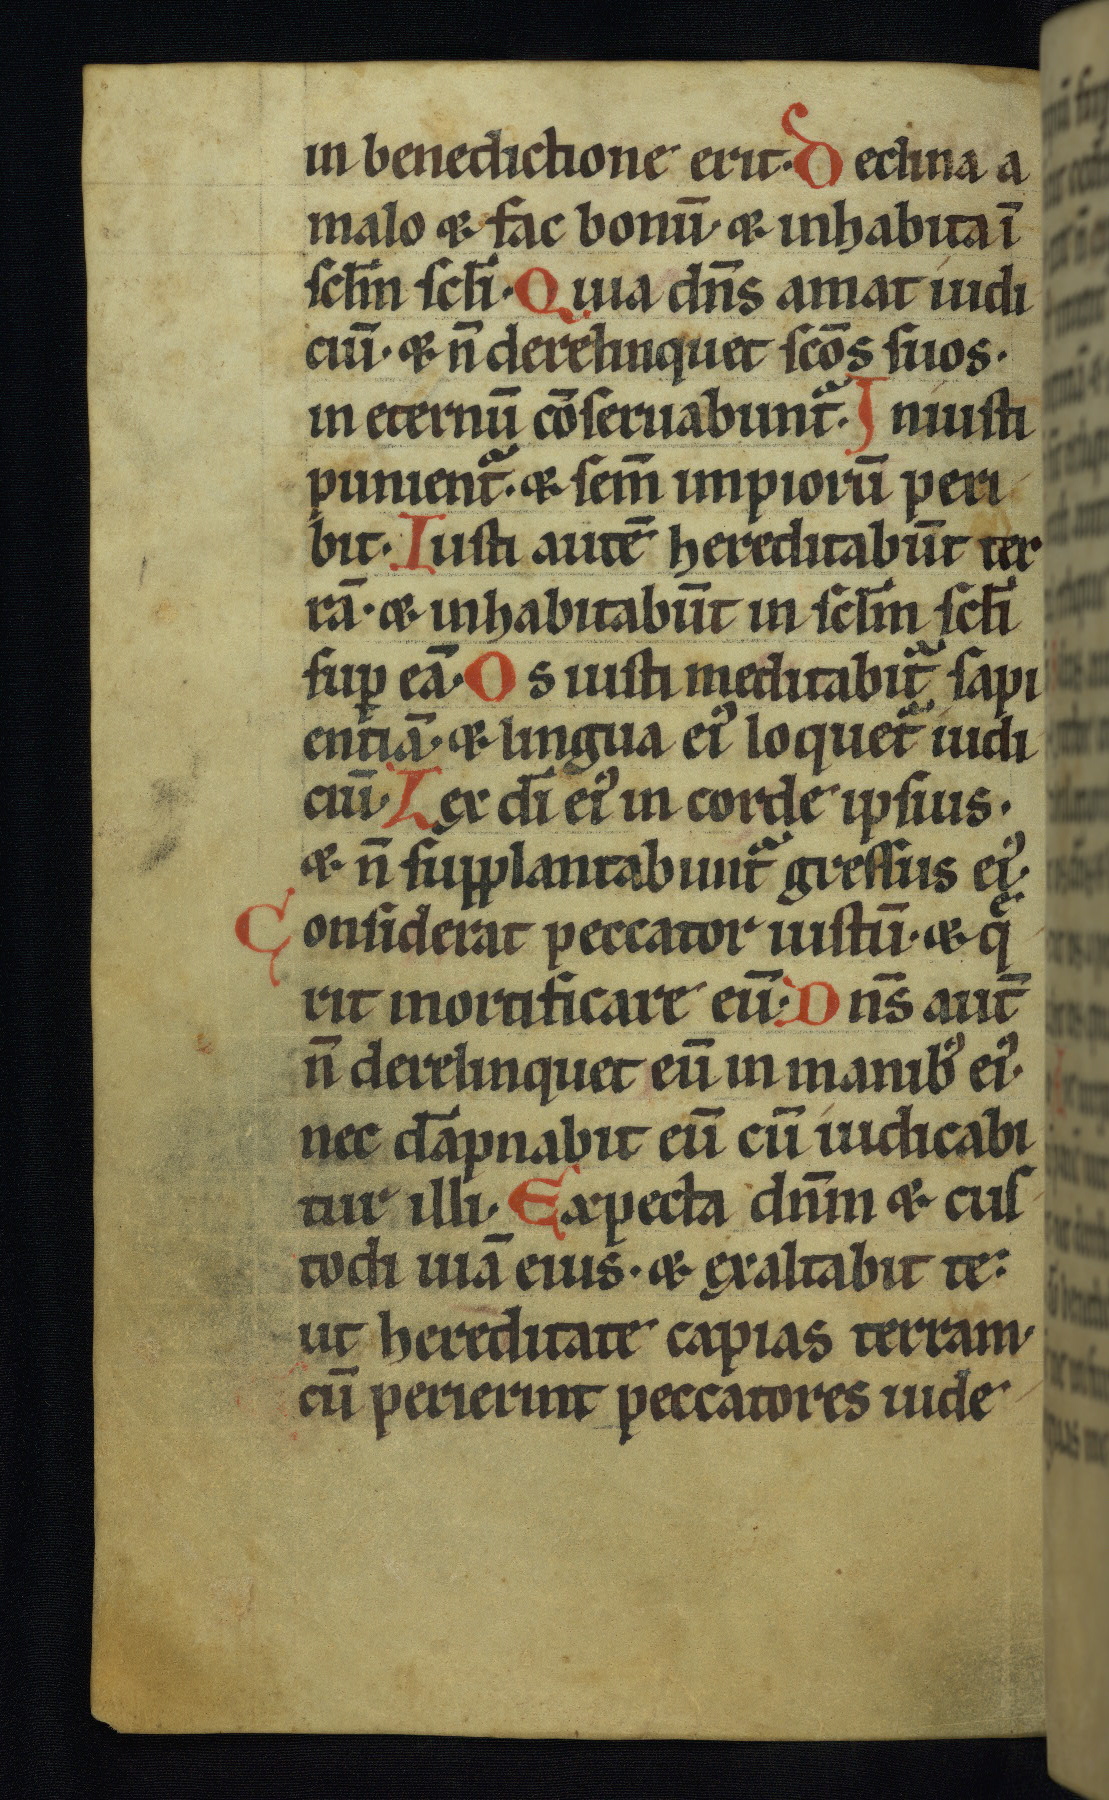 in benedictione erit. Declina a
malo & fac bonū. & inhabita ī
sclm̄ scłi. Quia dn̄s amat iudi
ciū. & n̄ derelinquet scōs suos.
in eternū cōseruabunt᷑. Iniusti
punient᷑. & sem̄ impiorū peri
bit. Iusti autē hereditabūt ter
rā. & inhabitabūt in sclm̄ scłi
suꝑ eā. Os iusti meditabit᷑ sapi
entiā. & lingua eiꝰ loquet᷑ iudi
ciū. Lex dī eiꝰ in corde ipsius.
& n̄ supplantabunt᷑ gressus eiꝰ.
Considerat peccator iustū. & qͤ
rit mortificare eū. Dn̄s aut̄
n̄ derelinquet eū in manibꝰ eiꝰ.
nec dāpnabit eū cū iudicabi
tur illi. Expecta dn̄m & cus
todi uiā eius. & exaltabit te:
ut hereditate capias terram.
cū perierint peccatores uide